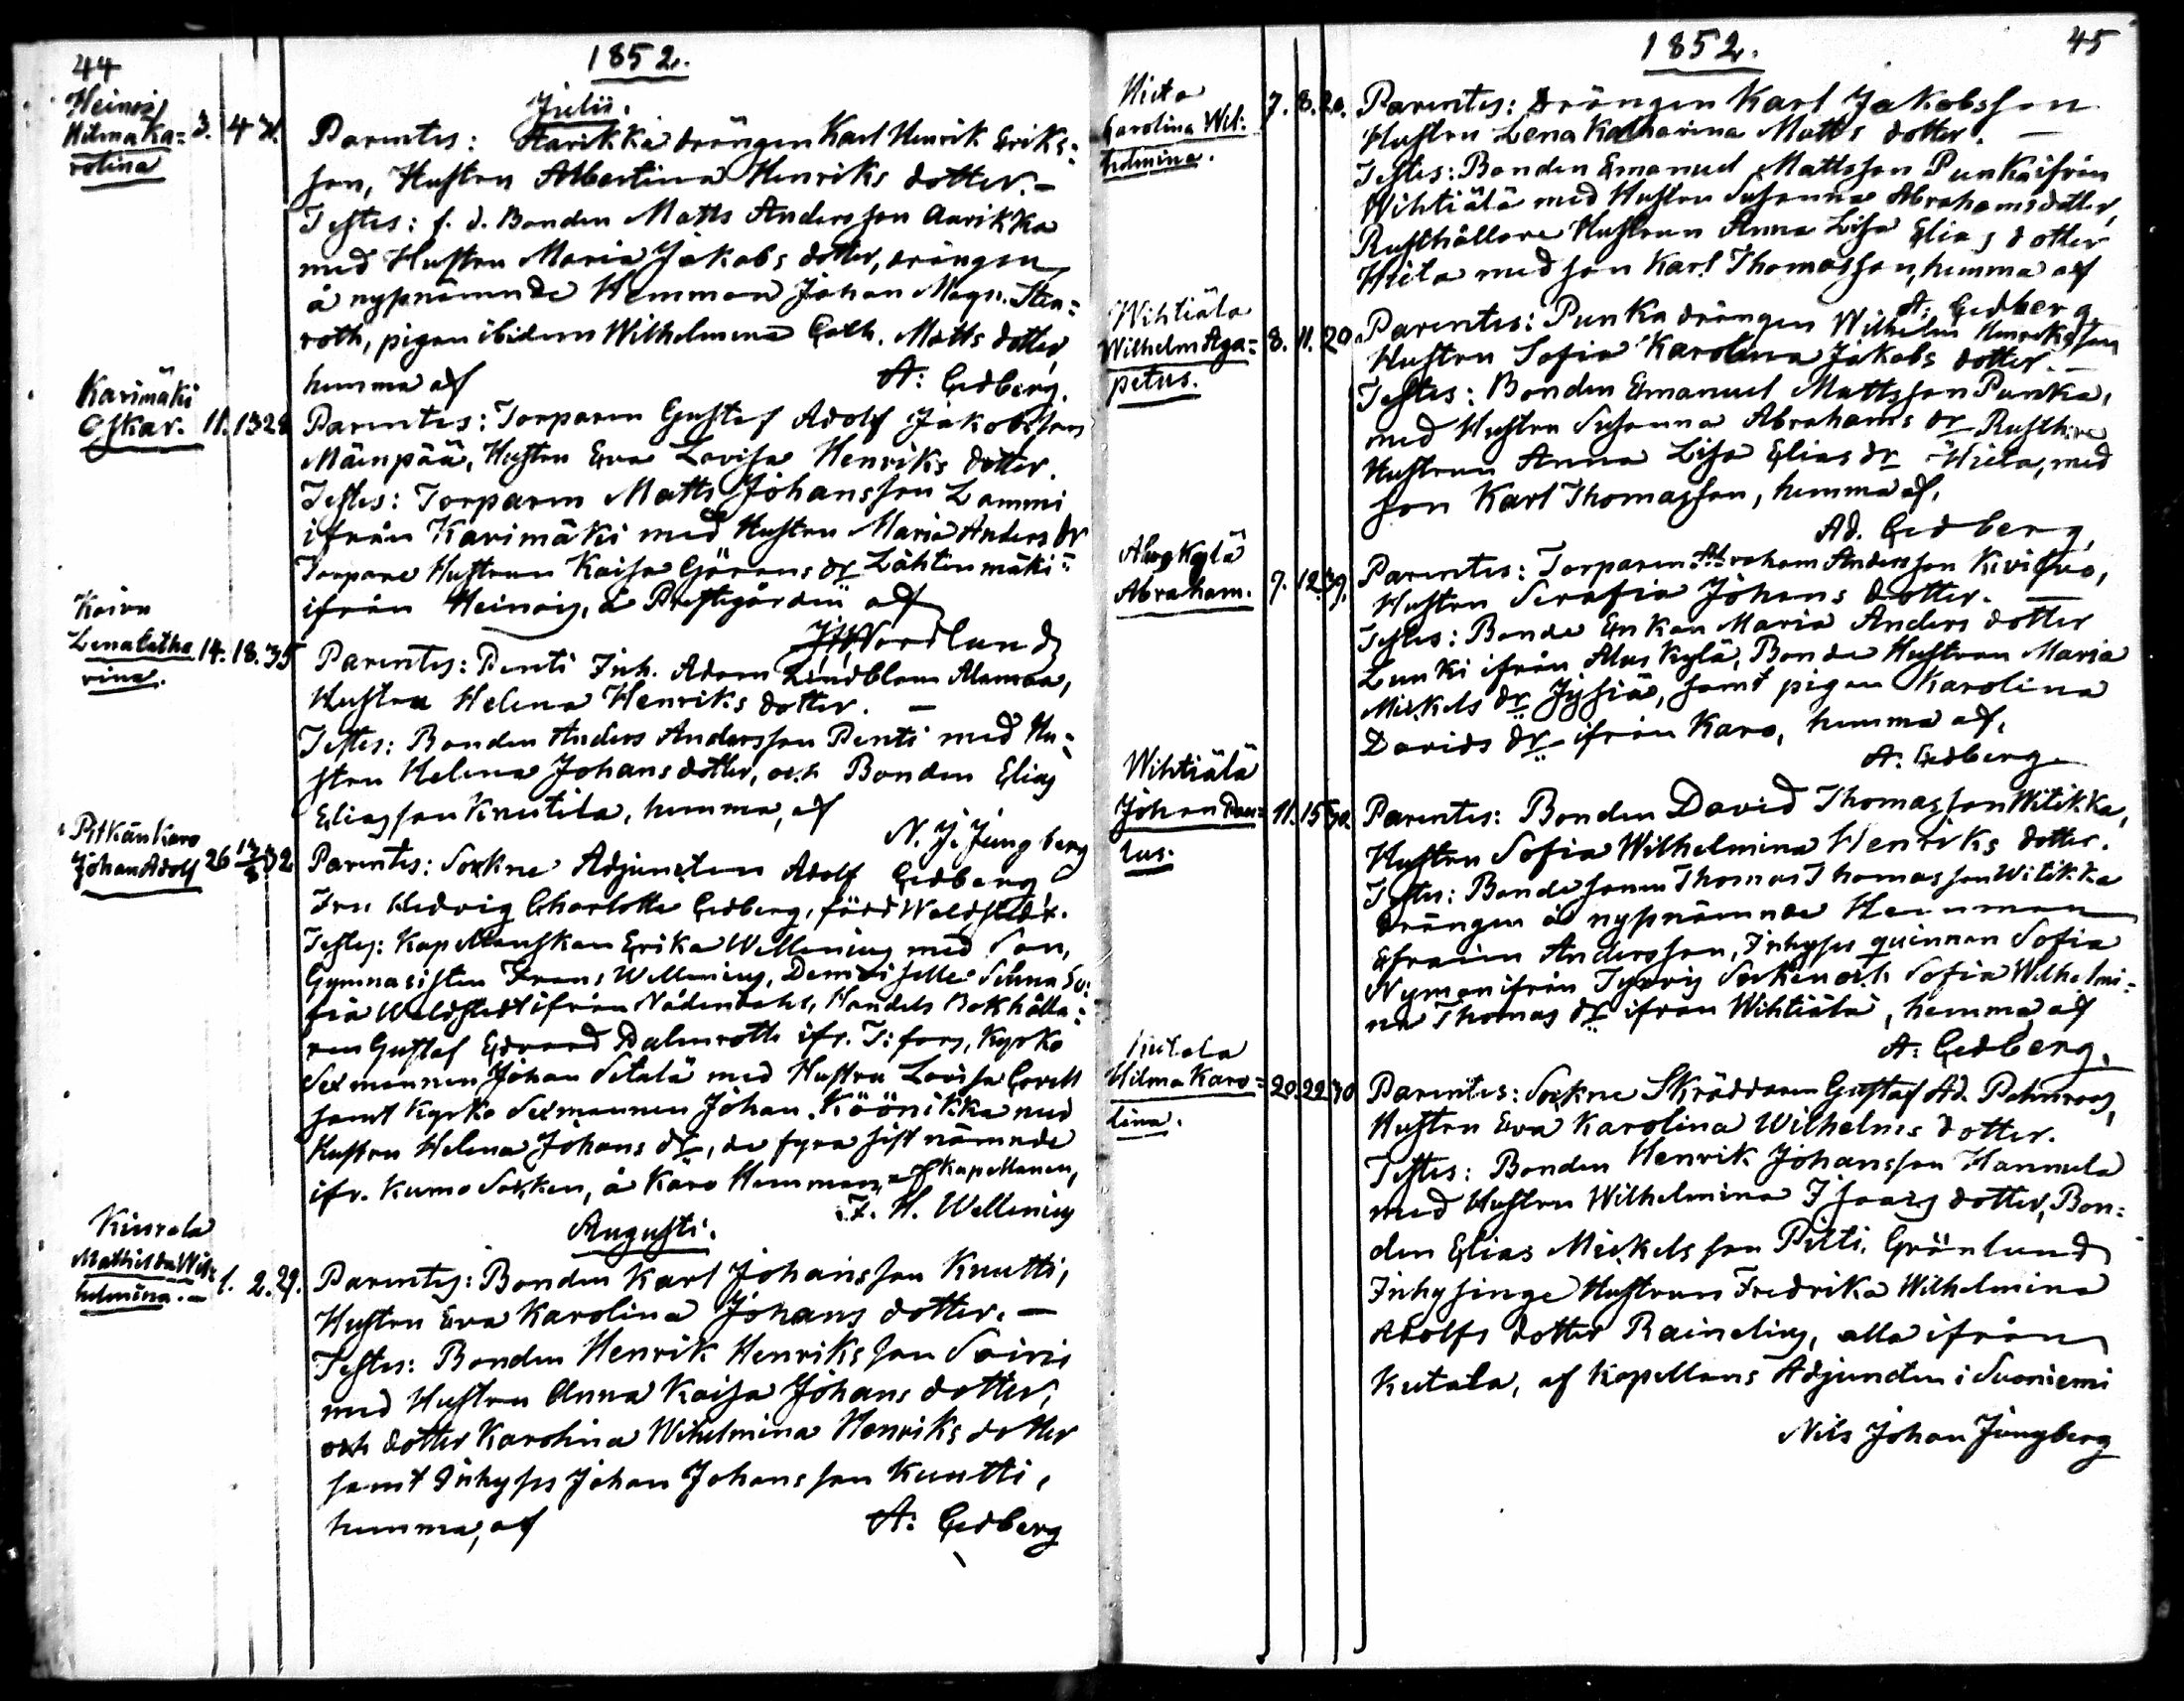 44
1852.
Julii.
Heinois
Hilma Ka=
rolina
3. 4 31.
Parentes: Aarikka drängen Karl Henrik Eriks=
son, Hustru Albertina Henriks dotter. —
Testes: f. d. Bonden Matts Andersson Aarikka
med Hustru Maria Jakobs dotter, drängen
å nyssnämnde Hemman Johan Magn. Sten=
roth, pigan ibidem Wilhelmina Cath. Matts dotter,
hemma af
A: Gedberg.
Karimäki
Oskar.
11. 13 28
Parentes: Torparen Gustaf Adolf Jakobsson
Mäenpää, Hustru Eva Lovisa Henriks dotter.
Testes: Torparen Matts Johansson Lammi
ifrån Karimäki med Hustru Maria Anders dr
Torpare Hustrun Kaisa Görans dr Lähtenmäki
ifrån Heinois, å Prestgården af
Nordlund
Koivu
Lena Catha
rina.
14. 18. 35
Parentes: Penti Inh. Adam Lindblom Alansaa,
Hustru Helena Henriks dotter. —
Testes: Bonden Anders Andersson Penti med Hu=
stru Helena Johans dotter, och Bonden Elias
Eliasson Knutila, hemma, af
N. J. Jungberg
Pitkän Karo
Johan Adolf
26 12/8 32
Parentes: Sockne Adjuncten Adolf Gedberg
Fru Hedvig Charlotte Gedberg, född Waldstedt.
Testes: Kapellanskan Erika Wellenius med Son,
Gymnasisten Frans Wellenius, Demoiselle Selma So=
fia Waldstedt ifrån Nådendahl, Handels Bokhålla=
ren Gustaf Edvard Dalenroth ifr. T:fors, Kyrko
Sexmannen Johan Setalä med Hustru Lovisa Gorell
samt Kyrko Sexmannen Johan Köönikka med
Hustru Helena Johans dr, de fyra sist nämnde
ifr. Kumo Socken, å Karo Hemman, af Kapellanen,
F. H. Wellenius
Augusti.
Kiurala
Mathilda Wil=
helmina. —
1. 2. 29.
Parentes: Bonden Karl Johansson Knutti,
Hustru Eva Karolina Johans dotter. —
Testes: Bonden Henrik Henriksson Soinis
med Hustru Anna Kaisa Johans dotter,
och dotter Karolina Wilhelmina Henriks dotter
samt Inhyses Johan Johansson Knutti,
hemma, af
A: Gedberg
1852.
45
Hieta
Carolina Wil=
helmina.
7. 8. 20.
Parentes: Drängen Karl Jakobsson
Hustru Lena Katharina Matts dotter. —
Testes: Bonden Emanuel Mattsson Punka ifrån
Wihtiälä med Hustru Susanna Abrahams dotter,
Rusthållare Hustrun Anna Lisa Elias dotter
Hieta med son Karl Thomasson, hemma af
A: Gedberg
Wihtiälä
Wilhelm Aga=
petus.
8. 11. 20.
Parentes: Punka drängen Wilhelm Henriksson
Hustru Sofia Karolina Jakobs dotter. —
Testes: Bonden Emanuel Mattsson Punka,
med Hustru Susanna Abrahams dr Rusth:re
Hustrun Anna Lisa Elias dr Hieta, med
son Karl Thomasson, hemma af,
Ad. Gedberg,
Aluskylä
Abraham.
9. 12. 39.
Parentes: Torparen Abraham Andersson Kivisuo,
Hustru Serafia Johans dotter. —
Testes: Bonde Enkan Maria Anders dotter
Lunki ifrån Aluskylä, Bonde Hustrun Maria
Mickels dr Jysiä, samt pigan Karolina
Davids dr ifrån Karo, hemma af,
A. Gedberg
Wihtiälä
Johan Pau=
lus.
11. 15 30.
Parentes: Bonden David Thomasson Witikka,
Hustru Sofia Wilhelmina Henriks dotter.
Testes: Bonde sonen Thomas Thomasson Witikka
Drängen å nyssnämnde Hemman
Efraim Andersson, Inhyses quinnan Sofia
Nyman ifrån Tyrvis Socken och Sofia Wilhelmi=
na Thomas dr ifrån Wihtiälä, hemma af
A: Gedberg.
Kutala
Hilma Karo=
lina.
20. 22 30
Parentes: Sockne Skräddaren Gustaf Ad. Palmroos,
Hustru Eva Karolina Wilhelms dotter.
Testes: Bonden Henrik Johansson Hannula
med Hustru Wilhelmina Isaacs dotter, Bon=
den Elias Mickelsson Pitti. Grönlund
Inhysinge Hustrun Fredrika Wilhelmina
Adolfs dotter Rainelius, alla ifrån
Kutala, af Kapellans Adjuncten i Suoniemi
Nils Johan Jungberg